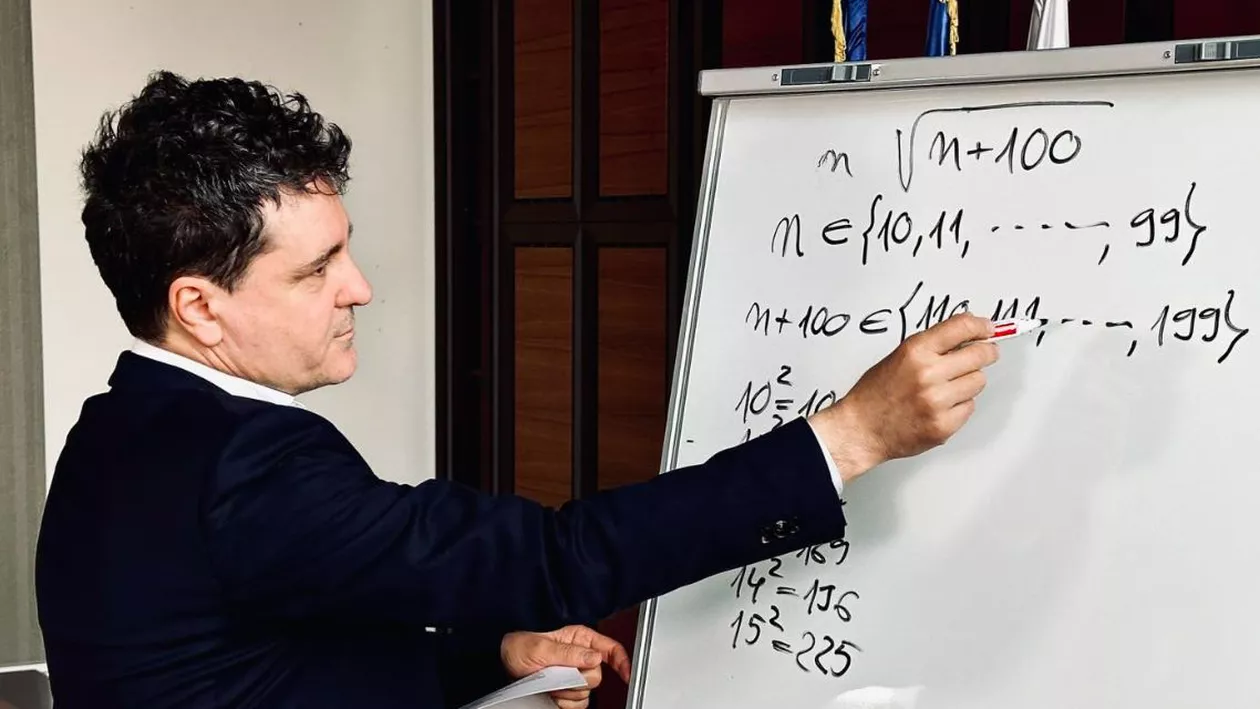 n √n+100
n ∈ {10, 11, ....., 99}
n+100 ∈ {110, 111, ..., 199}
10² = 10
169
14² = 196
15² = 225